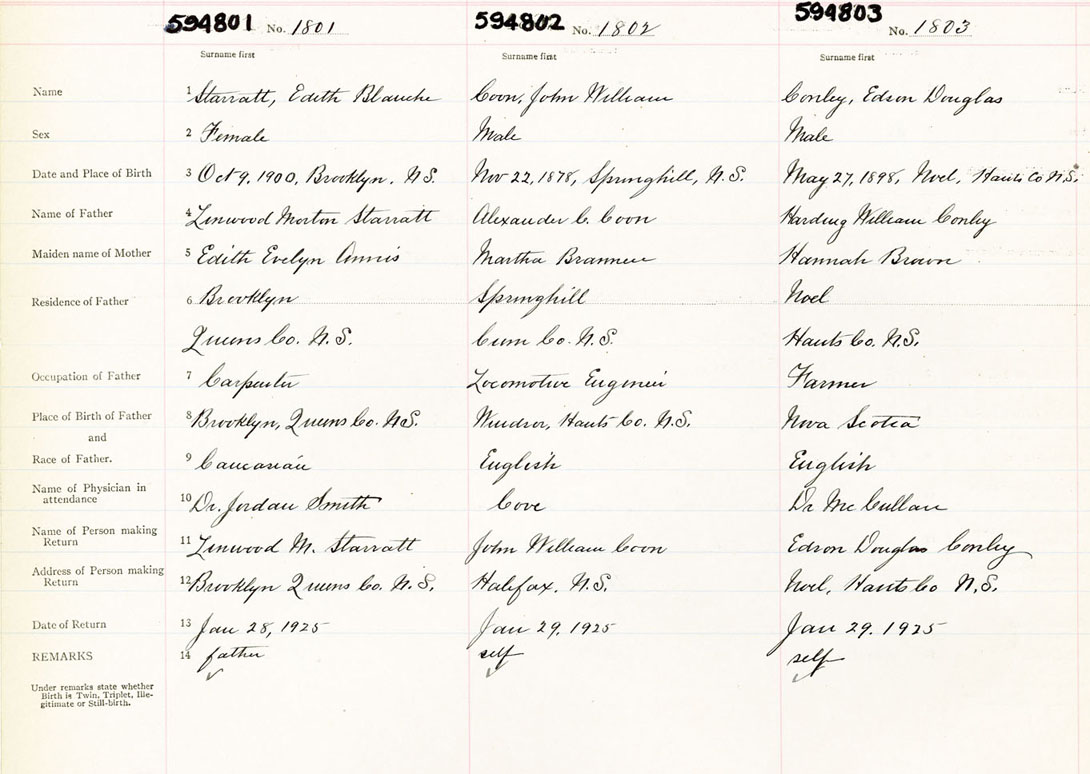 594801 No. 1801 594802 No. 1802 594803 No. 1803
Surname first Surname first Surname first
Name 1 Starratt, Edith Blanche Coon, John William Conley, Edson Douglas
Sex 2 Female Male Male
Date and Place of Birth 3 Oct 9, 1900, Brooklyn, N.S. Nov 22, 1878, Springhill, N.S. May 27, 1898, Noel, Hants Co N.S.
Name of Father 4 Linwood Morton Starratt Alexander C. Coon Harding William Conley
Maiden name of Mother 5 Edith Evelyn Annis Martha Brannen Hannah Brown
Residence of Father 6 Brooklyn Springhill Noel
Queens Co. N.S. Cum Co. N.S. Hants Co. N.S.
Occupation of Father 7 Carpenter Locomotive Engineer Farmer
Place of Birth of Father 8 Brooklyn, Queens Co. N.S. Windsor, Hants Co. N.S. Nova Scotia
and
Race of Father. 9 Caucasian English English
Name of Physician in
attendance 10 Dr. Jordan Smith Cove Dr McCullan
Name of Person making
Return 11 Linwood M. Starratt John William Coon Edson Douglas Conley
Address of Person making
Return 12 Brooklyn Queens Co. N.S. Halifax, N.S. Noel, Hants Co N.S.
Date of Return 13 Jan 28, 1925 Jan 29, 1925 Jan 29, 1925
REMARKS 14 father self self
Under remarks state whether
Birth is Twin, Triplet, Ille-
gitimate or Still-birth.